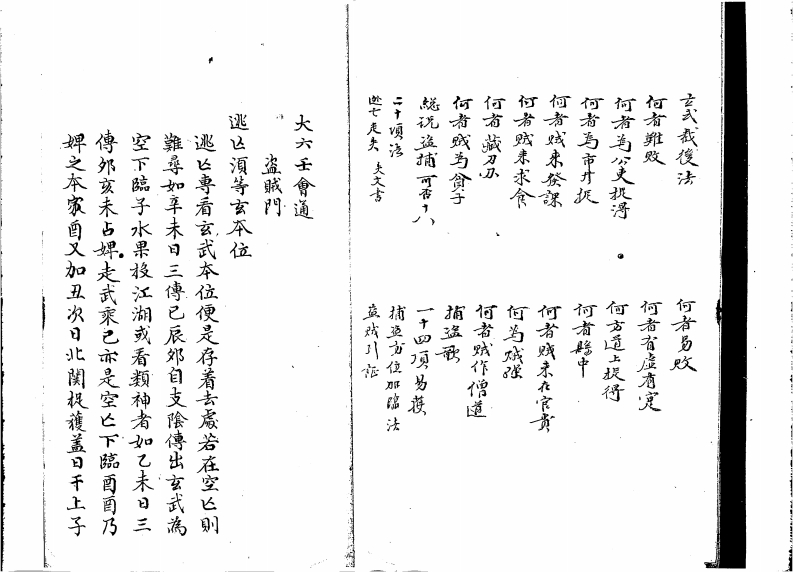 玄武截後法
何者難敗
何者為公吏捉得
何者為市井捉
何者賊來發課
何者賊來求食
何者藏刀刃
何者賊為貧子
總說盜捕可否十八
二十項法
逃亡走失 失文書
何者易敗
何者有虛有寔
何方道上捉得
何者賊中
何者賊來在官貴
何為賊強
何者賊作僧道
捕盜歌
一十四項易獲
捕盜方位加臨法
盜賊引証
大六壬會通
盜賊門
逃亡須等玄本位
逃亡專看玄武本位便是存着去處若在空亡則
難尋如辛未日三傳巳辰夘自支陰傳出玄武為
空下臨子水果投江湖或看類神者如乙未日三
傳夘亥未占婢走武乘巳亦是空亡下臨酉酉乃
婢之本家酉又加丑次日北関捉獲盖日干上子